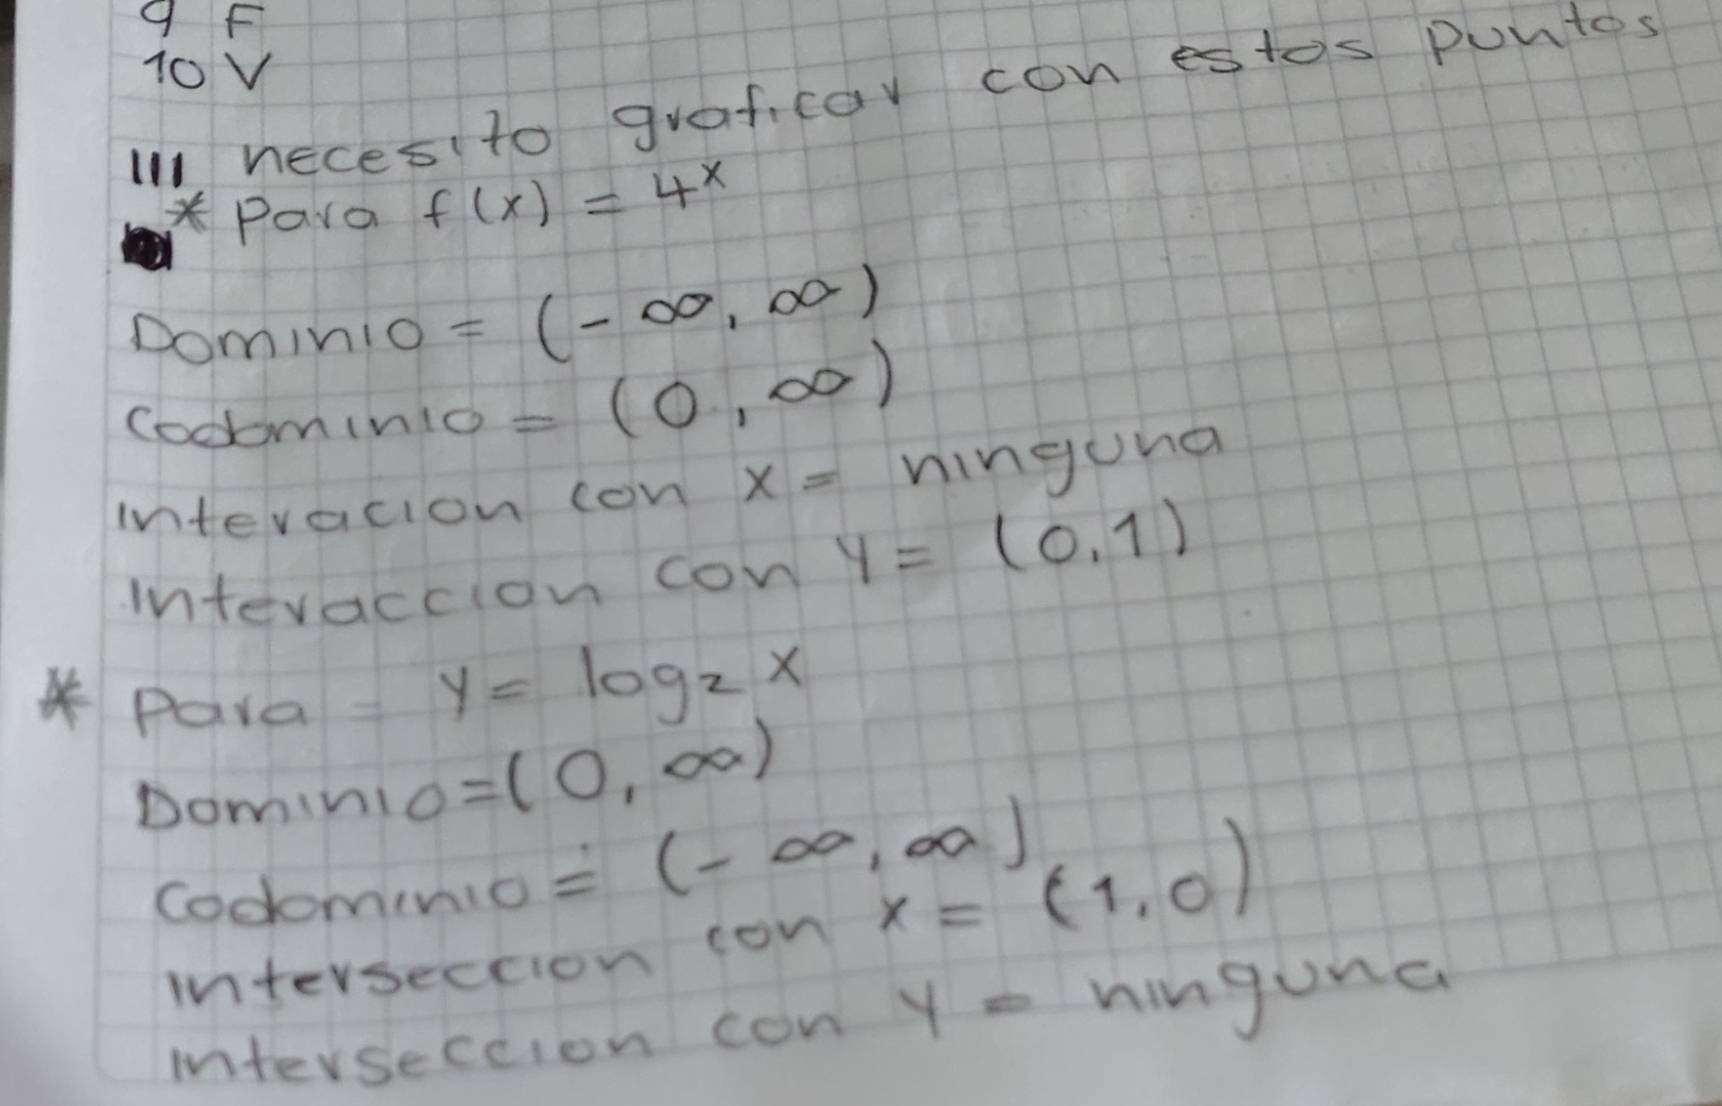 9 F
10 V
III necesito graficar con estos puntos
* Para f(x) = 4^x
Dominio = (-∞, ∞)
Codominio = (0, ∞)
interacion con x = ninguna
interaccion con Y = (0,1)
* Para Y = log₂ x
Dominio = (0, ∞)
Codominio = (-∞, ∞)
interseccion con x = (1,0)
interseccion con Y = ninguna